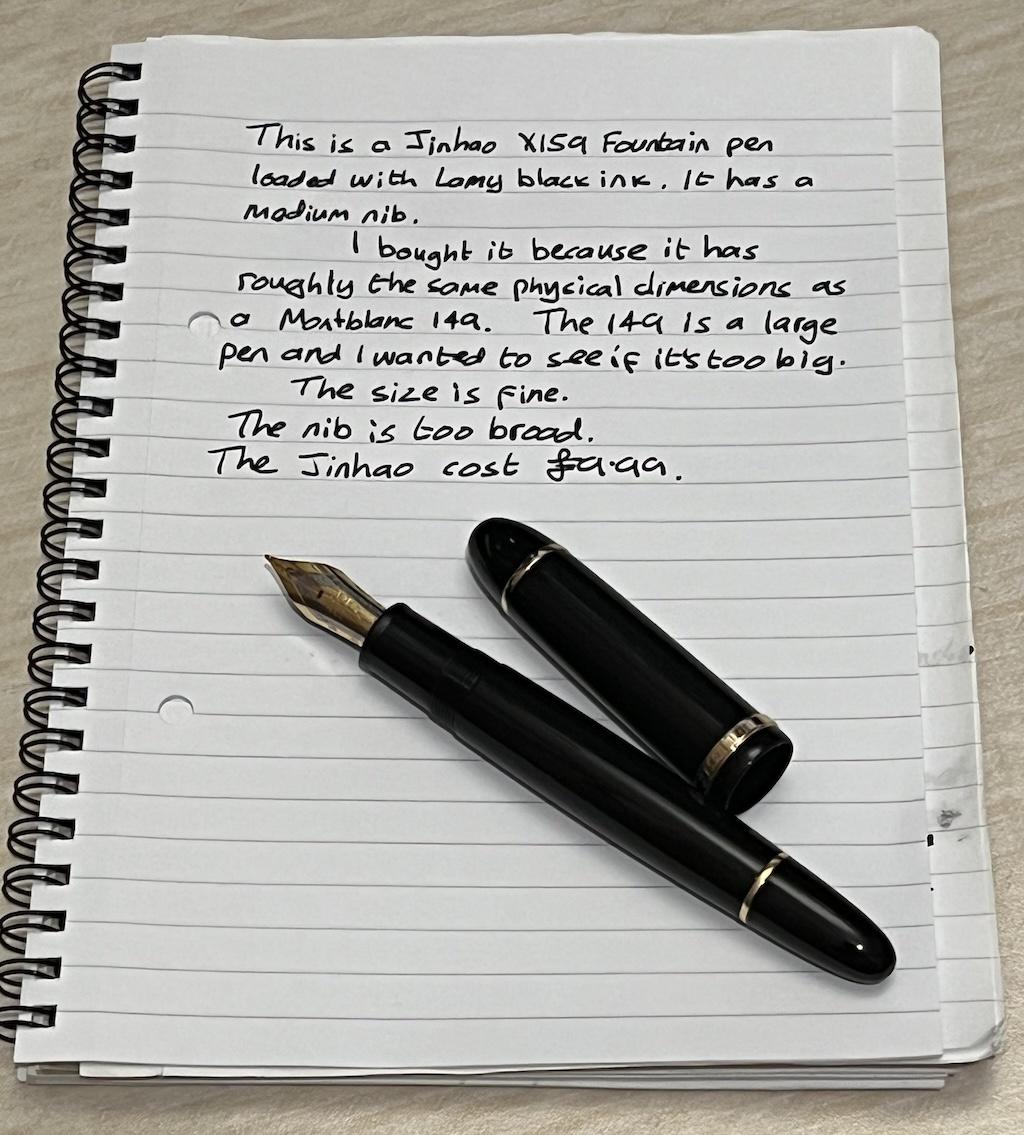 This is a Jinhao X159 Fountain pen
loaded with Lamy black ink. It has a
medium nib.
I bought it because it has
roughly the same physical dimensions as
a Montblanc 149. The 149 is a large
pen and I wanted to see if it's too big.
The size is fine.
The nib is too broad.
The Jinhao cost £9.99.